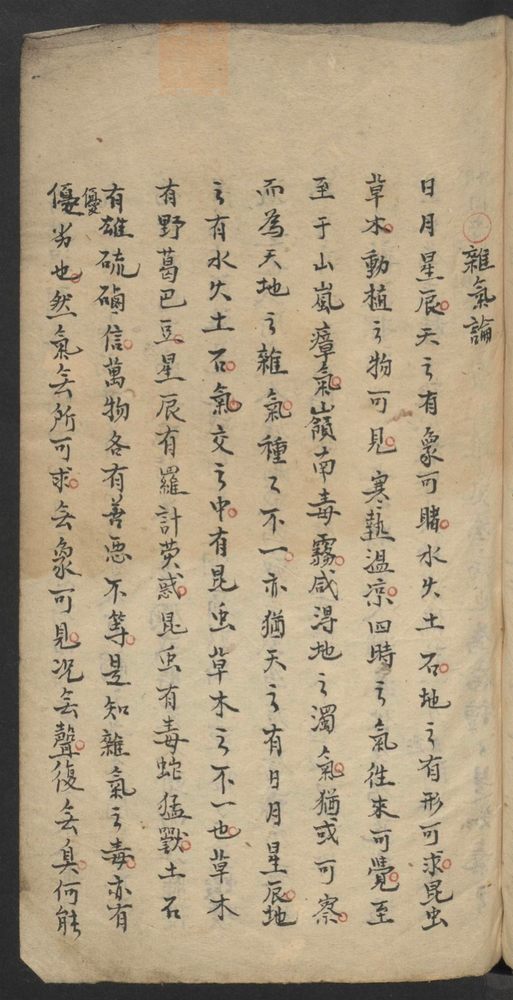 雜氣論
日月星辰天之有象可睹水火土石地之有形可求昆虫
草木動植之物可見寒熱温凉四時之氣徃来可覺至
至于山嵐瘴氣嶺南毒霧咸淂地之濁氣猶或可察
而為天地之雜氣種々不一亦猶天之有日月星辰地
之有水火土石氣交之中有昆虫草木之不一也草木
有野葛巴豆星辰有羅計荧惑昆虫有毒蛇猛獸土石
有雄硫硇信萬物各有善惡不等是知雜氣之毒亦有
優
優劣也然氣無所可求無象可見况無聲復無臭何能